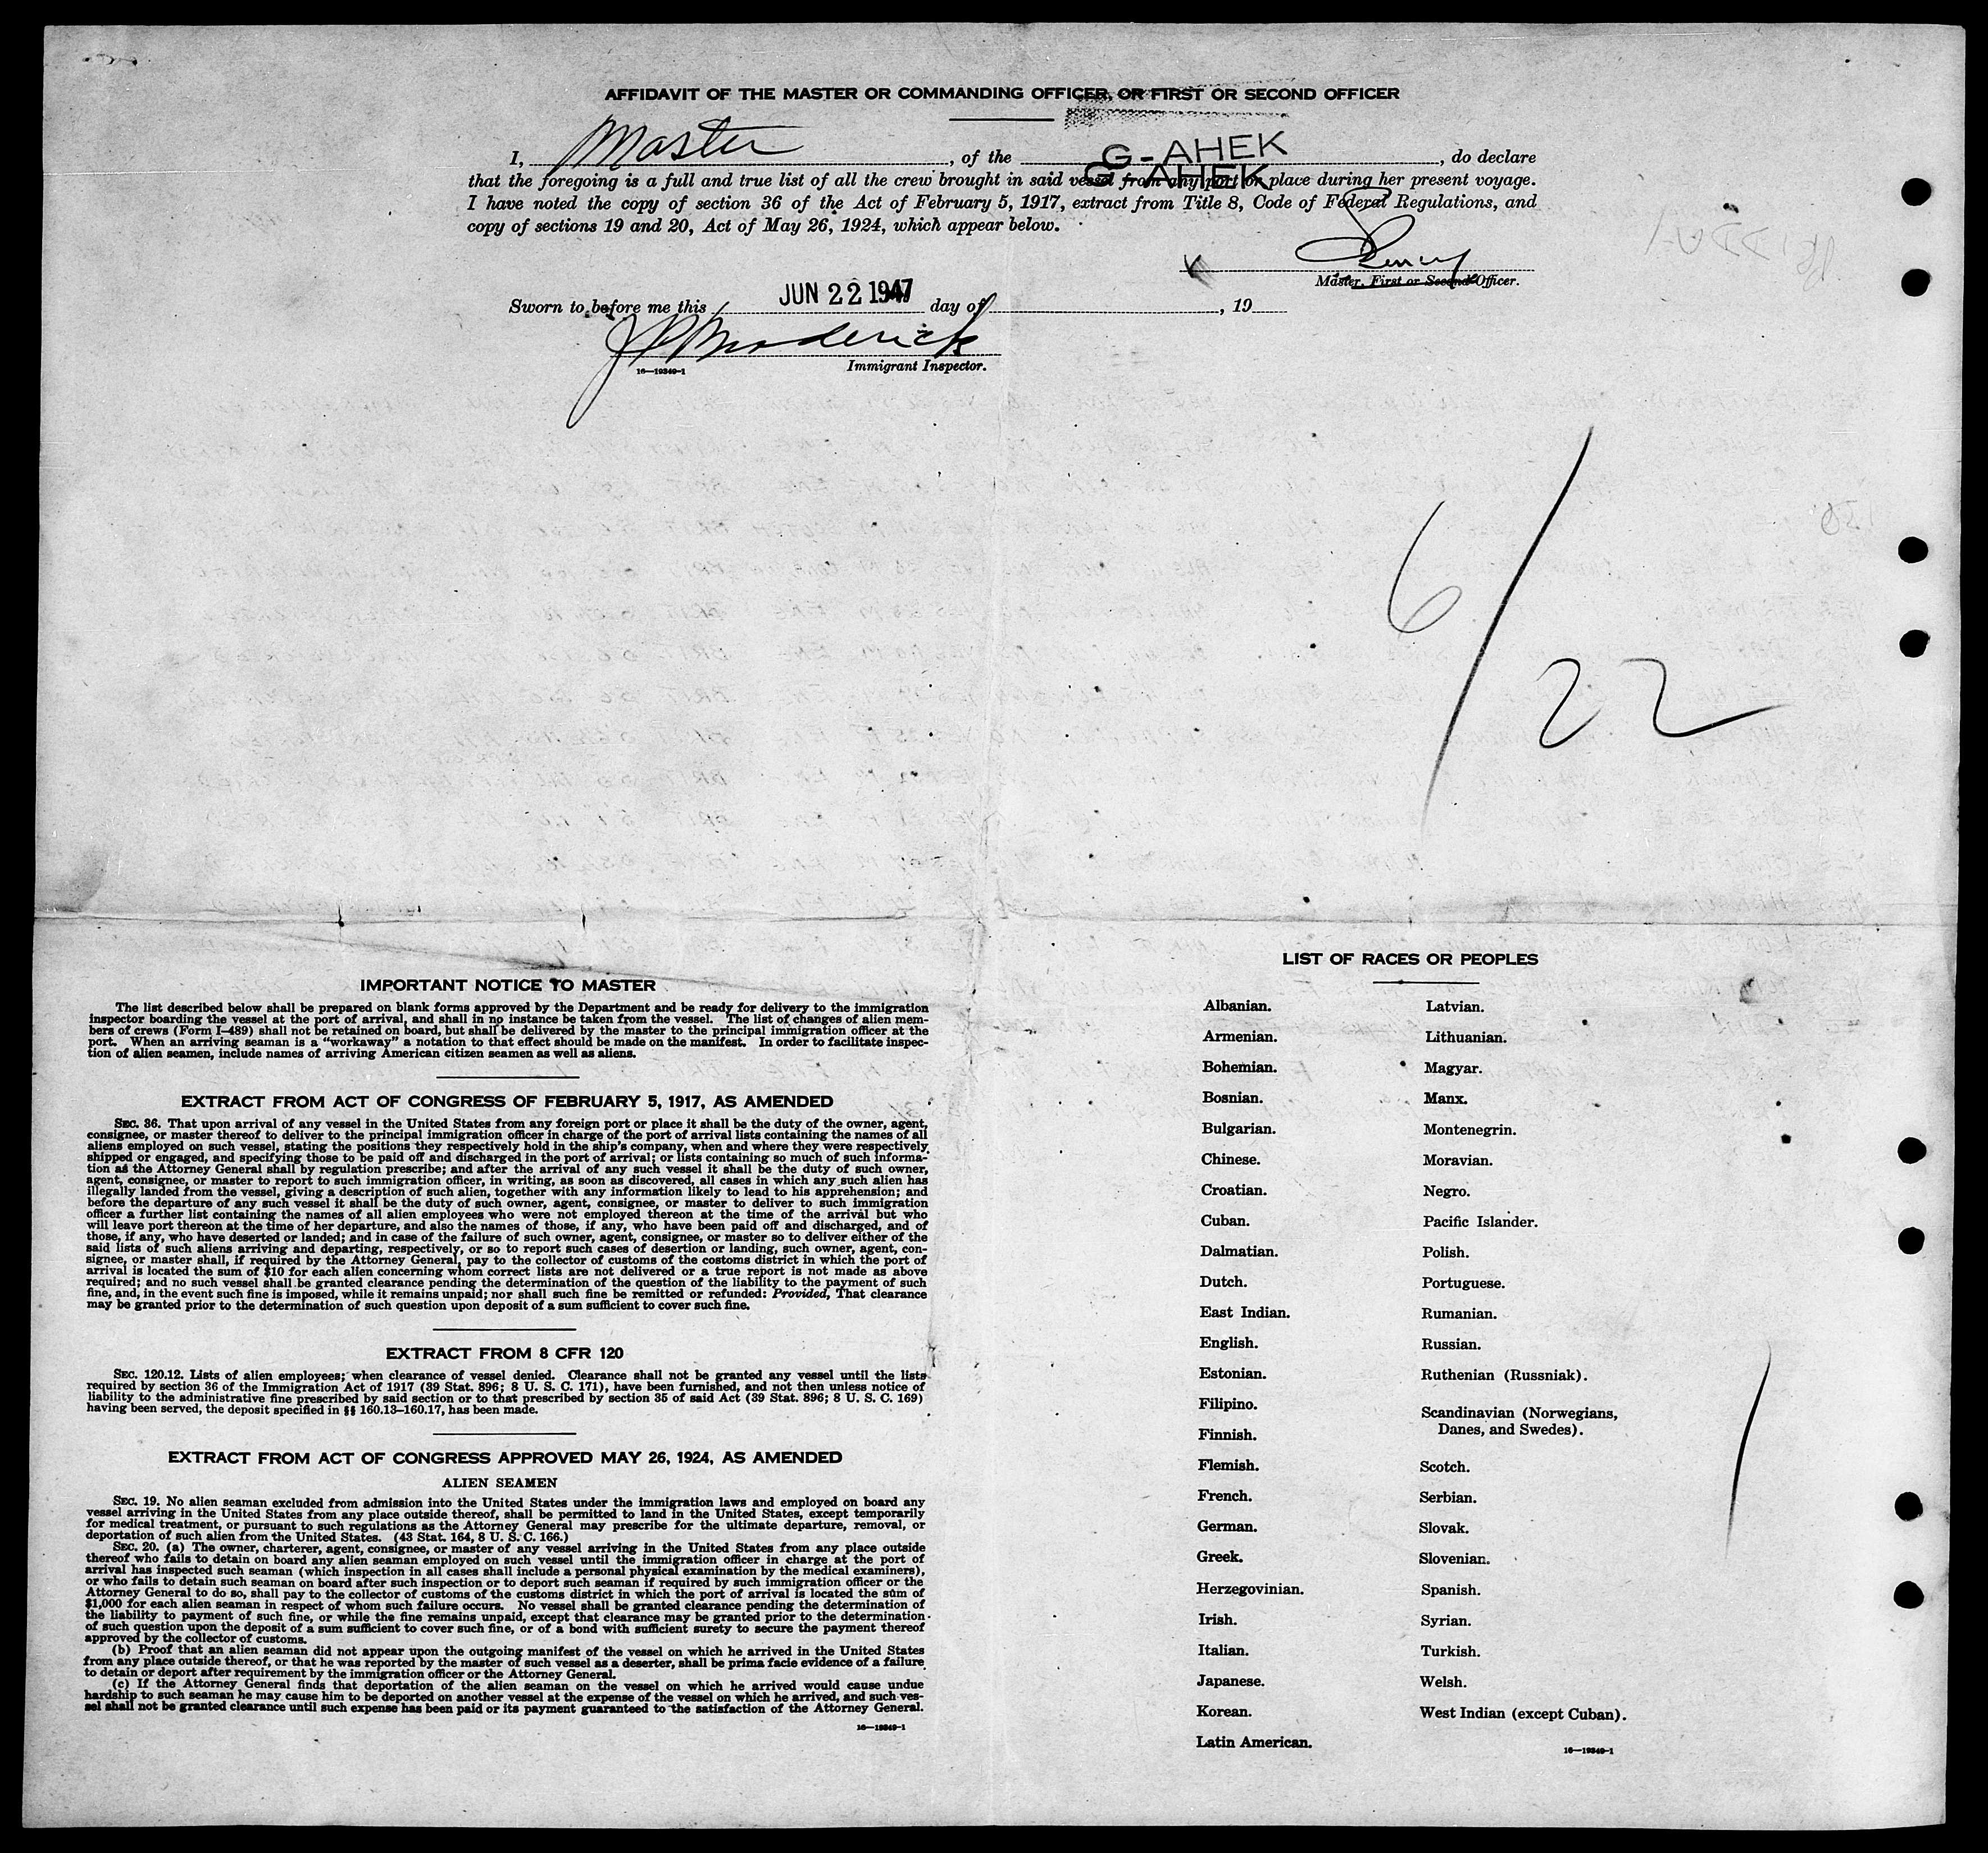 AFFIDAVIT OF THE MASTER OR COMMANDING OFFICER, OR FIRST OR SECOND OFFICER
I, Master, of the G-AHEK, do declare
G-AHEK
that the foregoing is a full and true list of all the crew brought in said vessel from any port or place during her present voyage.
I have noted the copy of section 36 of the Act of February 5, 1917, extract from Title 8, Code of Federal Regulations, and
copy of sections 19 and 20, Act of May 26, 1924, which appear below.
Master, First or Second Officer.
Sworn to before me this JUN 22 1947 day of , 19
J P Broderick
16—19349-1 Immigrant Inspector.
6/22
IMPORTANT NOTICE TO MASTER
The list described below shall be prepared on blank forms approved by the Department and be ready for delivery to the immigration
inspector boarding the vessel at the port of arrival, and shall in no instance be taken from the vessel. The list of changes of alien mem-
bers of crews (Form I-489) shall not be retained on board, but shall be delivered by the master to the principal immigration officer at the
port. When an arriving seaman is a "workaway" a notation to that effect should be made on the manifest. In order to facilitate inspec-
tion of alien seamen, include names of arriving American citizen seamen as well as aliens.
EXTRACT FROM ACT OF CONGRESS OF FEBRUARY 5, 1917, AS AMENDED
SEC. 36. That upon arrival of any vessel in the United States from any foreign port or place it shall be the duty of the owner, agent,
consignee, or master thereof to deliver to the principal immigration officer in charge of the port of arrival lists containing the names of all
aliens employed on such vessel, stating the positions they respectively hold in the ship's company, when and where they were respectively
shipped or engaged, and specifying those to be paid off and discharged in the port of arrival; or lists containing so much of such informa-
tion as the Attorney General shall by regulation prescribe; and after the arrival of any such vessel it shall be the duty of such owner,
agent, consignee, or master to report to such immigration officer, in writing, as soon as discovered, all cases in which any such alien has
illegally landed from the vessel, giving a description of such alien, together with any information likely to lead to his apprehension; and
before the departure of any such vessel it shall be the duty of such owner, agent, consignee, or master to deliver to such immigration
officer a further list containing the names of all alien employees who were not employed thereon at the time of the arrival but who
will leave port thereon at the time of her departure, and also the names of those, if any, who have been paid off and discharged, and of
those, if any, who have deserted or landed; and in case of the failure of such owner, agent, consignee, or master so to deliver either of the
said lists of such aliens arriving and departing, respectively, or so to report such cases of desertion or landing, such owner, agent, con-
signee, or master shall, if required by the Attorney General, pay to the collector of customs of the costoms district in which the port of
arrival is located the sum of $10 for each alien concerning whom correct lists are not delivered or a true report is not made as above
required; and no such vessel shall be granted clearance pending the determination of the question of the liability to the payment of such
fine, and, in the event such fine is imposed, while it remains unpaid; nor shall such fine be remitted or refunded: Provided, That clearance
may be granted prior to the determination of such question upon deposit of a sum sufficient to cover such fine.
EXTRACT FROM 8 CFR 120
SEC. 120.12. Lists of alien employees; when clearance of vessel denied. Clearance shall not be granted any vessel until the lists
required by section 36 of the Immigration Act of 1917 (39 Stat. 896; 8 U. S. C. 171), have been furnished, and not then unless notice of
liability to the administrative fine prescribed by said section or to that prescribed by section 35 of said Act (39 Stat. 896; 8 U. S. C. 169)
having been served, the deposit specified in §§ 160.13–160.17, has been made.
EXTRACT FROM ACT OF CONGRESS APPROVED MAY 26, 1924, AS AMENDED
ALIEN SEAMEN
SEC. 19. No alien seaman excluded from admission into the United States under the immigration laws and employed on board any
vessel arriving in the United States from any place outside thereof, shall be permitted to land in the United States, except temporarily
for medical treatment, or pursuant to such regulations as the Attorney General may prescribe for the ultimate departure, removal, or
deportation of such alien from the United States. (43 Stat. 164, 8 U. S. C. 166.)
SEC. 20. (a) The owner, charterer, agent, consignee, or master of any vessel arriving in the United States from any place outside
thereof who fails to detain on board any alien seaman employed on such vessel until the immigration officer in charge at the port of
arrival has inspected such seaman (which inspection in all cases shall include a personal physical examination by the medical examiners),
or who fails to detain such seaman on board after such inspection or to deport such seaman if required by such immigration officer or the
Attorney General to do so, shall pay to the collector of customs of the customs district in which the port of arrival is located the sum of
$1,000 for each alien seaman in respect of whom such failure occurs. No vessel shall be granted clearance pending the determination of
the liability to payment of such fine, or while the fine remains unpaid, except that clearance may be granted prior to the determination
of such question upon the deposit of a sum sufficient to cover such fine, or of a bond with sufficient surety to secure the payment thereof
approved by the collector of customs.
(b) Proof that an alien seaman did not appear upon the outgoing manifest of the vessel on which he arrived in the United States
from any place outside thereof, or that he was reported by the master of such vessel as a deserter, shall be prima facie evidence of a failure
to detain or deport after requirement by the immigration officer or the Attorney General.
(c) If the Attorney General finds that deportation of the alien seaman on the vessel on which he arrived would cause undue
hardship to such seaman he may cause him to be deported on another vessel at the expense of the vessel on which he arrived, and such ves-
sel shall not be granted clearance until such expense has been paid or its payment guaranteed to the satisfaction of the Attorney General.
16—19349-1
LIST OF RACES OR PEOPLES
Albanian. Latvian.
Armenian. Lithuanian.
Bohemian. Magyar.
Bosnian. Manx.
Bulgarian. Montenegrin.
Chinese. Moravian.
Croatian. Negro.
Cuban. Pacific Islander.
Dalmatian. Polish.
Dutch. Portuguese.
East Indian. Rumanian.
English. Russian.
Estonian. Ruthenian (Russniak).
Filipino. Scandinavian (Norwegians,
Danes, and Swedes).
Finnish.
Flemish. Scotch.
French. Serbian.
German. Slovak.
Greek. Slovenian.
Herzegovinian. Spanish.
Irish. Syrian.
Italian. Turkish.
Japanese. Welsh.
Korean. West Indian (except Cuban).
Latin American.
16—19349-1